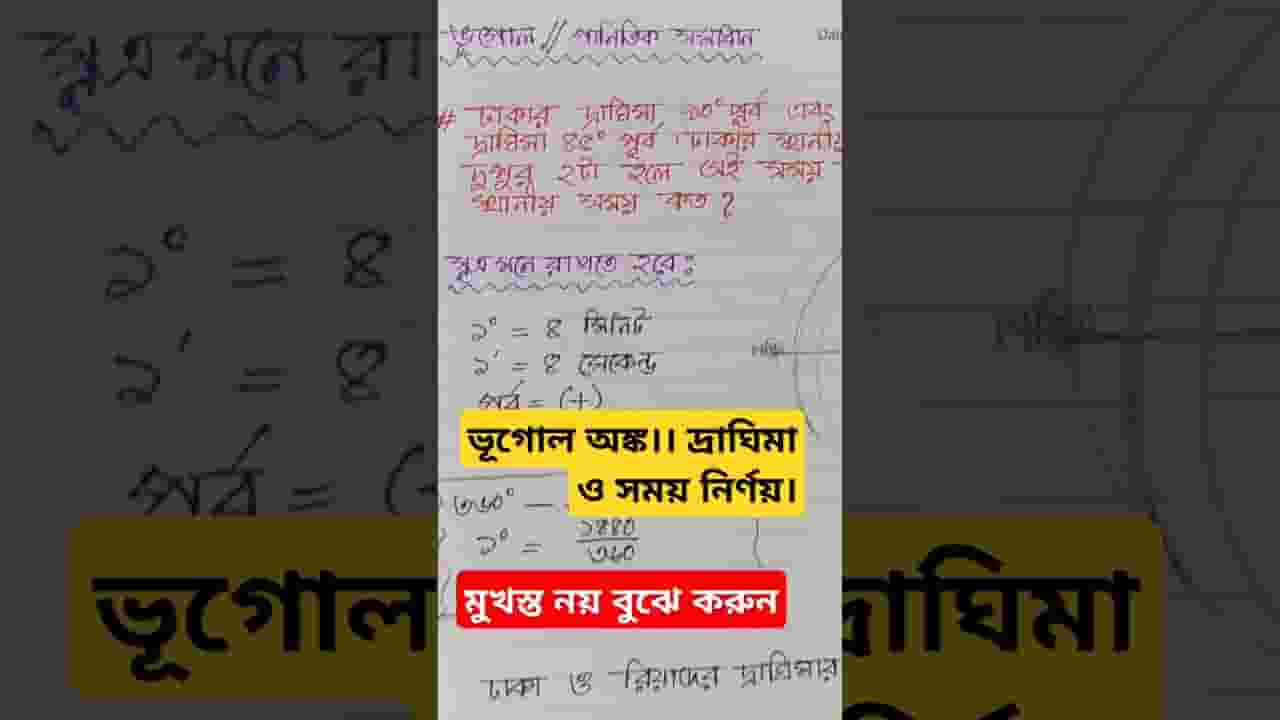 ভূগোল // গানিতিক সমাধান
# ঢাকার দ্রাঘিমা ৯০° পূর্ব এবং
দ্রাঘিমা ৪৫° পূর্ব। ঢাকার স্থানীয়
দুপুর ২টা হলে সেই সময়
স্থানীয় সময় কত?
সূত্র মনে রাখতে হবে:
১° = ৪ মিনিট
১' = ৪ সেকেন্ড
পূর্ব = (+)
ভূগোল অঙ্ক।। দ্রাঘিমা
ও সময় নির্ণয়।
৩৬০° —
১° = ১৪৪০/৩৬০
মুখস্ত নয় বুঝে করুন
ঢাকা ও রিয়াদের দ্রাঘিমার